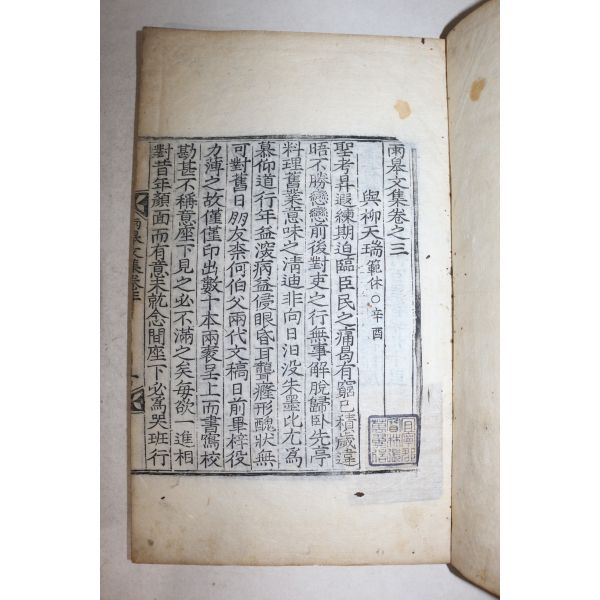 雨皋文集卷之三
與柳天瑞範休○辛酉
聖考昇遐練期迫臨臣民之痛曷有窮已積歲違
晤不勝戀戀前後對吏之行無事解脫歸臥先亭
料理舊業意味之淸迪非向日汨没朱墨比尤爲
慕仰道行年益深病益侵眼昏耳聾癃形醜狀無
可對舊日朋友柰何伯父兩代文稿日前畢梓役
力薄之故僅僅印出數十本兩袠呈上而書寫校
勘甚不稱意座下見之必不滿之矣每欲一進相
對昔年顔面而有意未就念間座下必爲哭班行
雨皋文集卷三
一